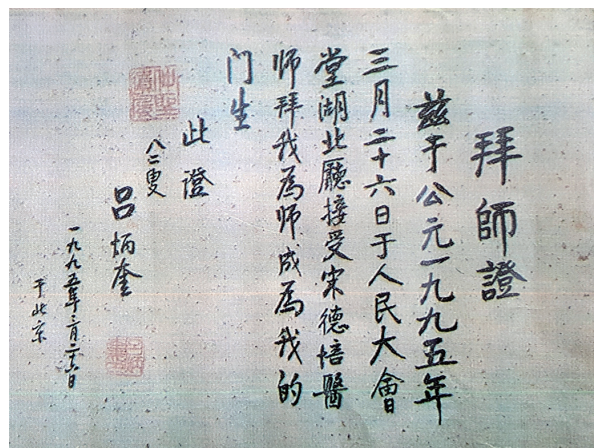 拜師證
兹于公元一九九五年
三月二十六日于人民大會
堂湖北廳接受宋德培醫
师拜我為师成為我的
门生
此證
八二叟
呂炳奎
一九九五年三月二十六日
于北京